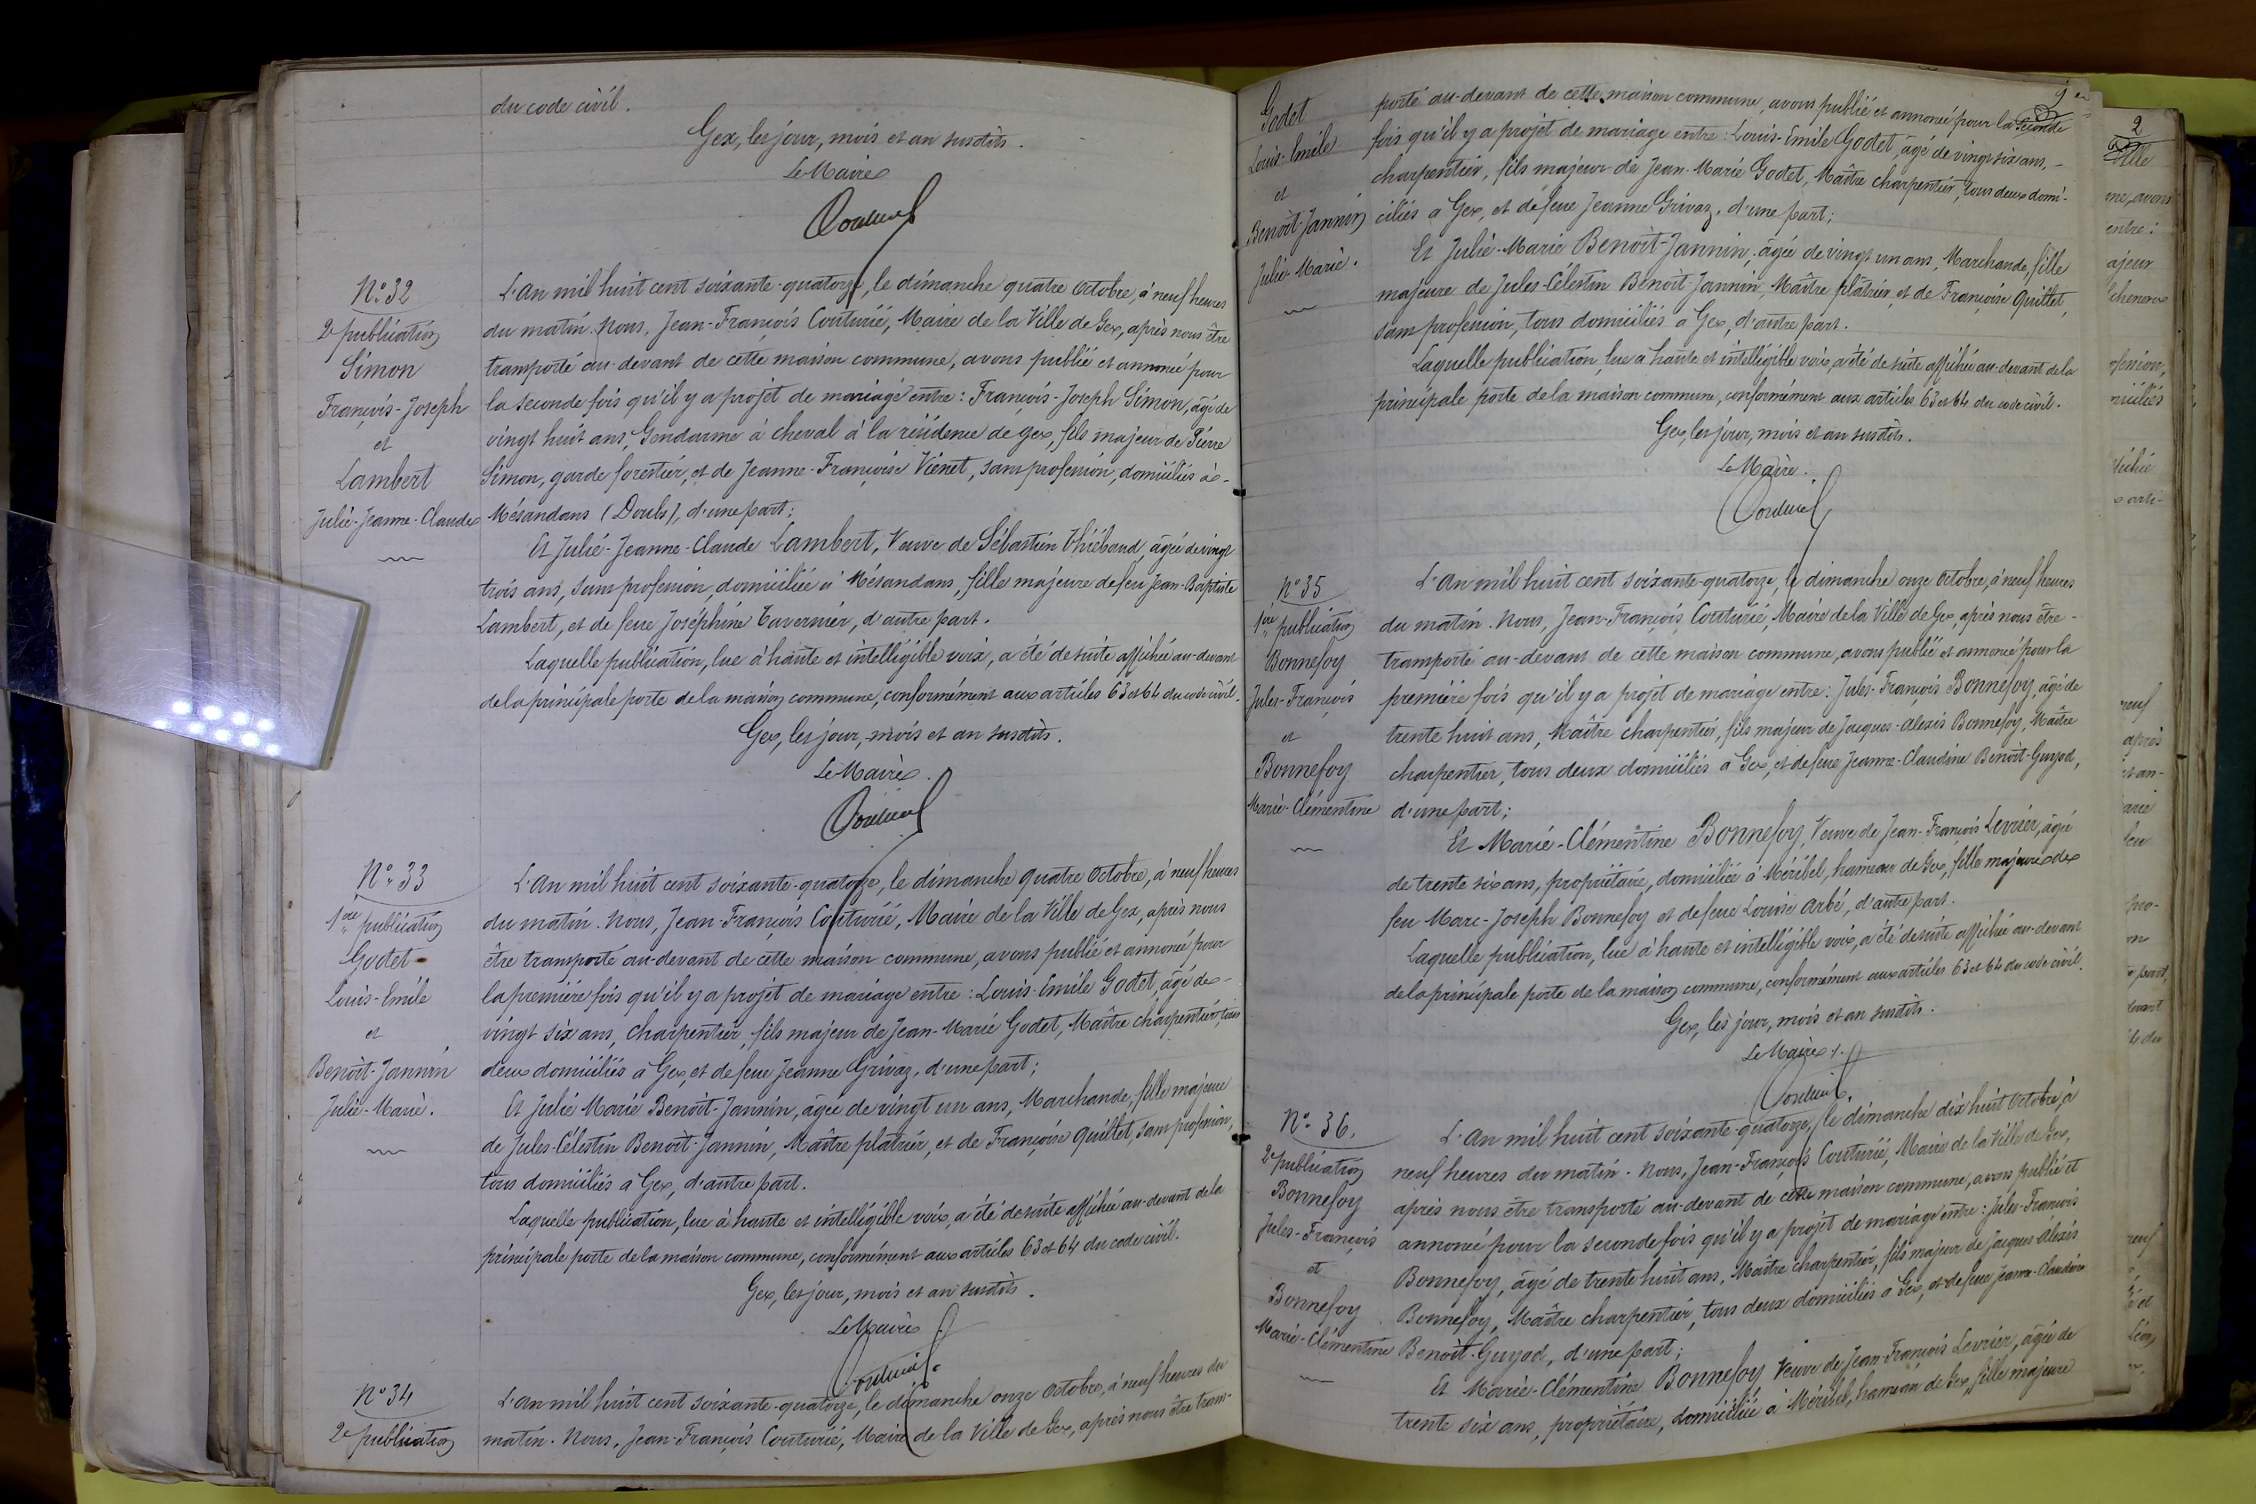 du code civil.
Gex, les jour, mois et an susdits.
Le Maire
N° 32
2e publication
Simon
François-Joseph
et
Lambert
Julie-Jeanne-Claude
L'An mil huit cent soixante-quatorze, le dimanche quatre Octobre, à neuf heures
du matin. Nous, Jean-François Couturié, Maire de la Ville de Gex, après nous être
transporté au-devant de cette maison commune, avons publié et annoncé pour
la seconde fois qu'il y a projet de mariage entre : François-Joseph Simon, âgé de
vingt huit ans, Gendarme à cheval à la résidence de Gex, fils majeur de Pierre
Simon, garde forestier, et de Jeanne-Françoise Viénet, sans profession, domiciliés à -
Mésandans (Doubs), d'une part ;
Et Julie-Jeanne-Claude Lambert, Veuve de Sébastien Thiébaud, âgée de vingt
trois ans, sans profession, domiciliée à Mésandans, fille majeure de feu Jean-Baptiste
Lambert, et de feue Joséphine Tavernier, d'autre part.
Laquelle publication, lue à haute et intelligible voix, a été de suite affichée au-devant
de la principale porte de la maison commune, conformément aux articles 63 et 64 du code civil.
Gex, les jour, mois et an susdits.
Le Maire.
N° 33
1ère publication
Godet
Louis-Emile
et
Benoît-Jannin
Julie-Marie.
L'An mil huit cent soixante-quatorze, le dimanche quatre Octobre, à neuf heures
du matin. Nous, Jean-François Couturié, Maire de la Ville de Gex, après nous
être transporté au-devant de cette maison commune, avons publié et annoncé pour
la première fois qu'il y a projet de mariage entre : Louis-Emile Godet, âgé de -
vingt six ans, charpentier, fils majeur de Jean-Marie Godet, Maître charpentier, tous
deux domiciliés à Gex, et de feue Jeanne Grivaz, d'une part ;
Et Julie Marie Benoît-Jannin, âgée de vingt un ans, Marchande, fille majeure
de Jules-Célestin Benoît-Jannin, Maître plâtrier, et de Françoise Quillet, sans profession,
tous domiciliés à Gex, d'autre part.
Laquelle publication, lue à haute et intelligible voix, a été de suite affichée au-devant de la
principale porte de la maison commune, conformément aux articles 63 et 64 du code civil.
Gex, les jour, mois et an susdits.
Le Maire
N° 34
2e publication
L'An mil huit cent soixante-quatorze, le dimanche onze Octobre, à neuf heures du
matin. Nous, Jean-François Couturié, Maire de la Ville de Gex, après nous être trans-
Godet
Louis-Emile
et
Benoît-Jannin
Julie-Marie.
porté au-devant de cette maison commune, avons publié et annoncé pour la seconde
fois qu'il y a projet de mariage entre : Louis-Emile Godet, âgé de vingt six ans, -
charpentier, fils majeur de Jean-Marie Godet, Maître charpentier, tous deux domi-
ciliés à Gex, et de feue Jeanne Grivaz, d'une part ;
Et Julie-Marie Benoît-Jannin, âgée de vingt un ans, Marchande, fille
majeure de Jules-Célestin Benoît-Jannin, Maître plâtrier, et de Françoise Quillet,
sans profession, tous domiciliés à Gex, d'autre part.
Laquelle publication, lue à haute et intelligible voix, a été de suite affichée au-devant de la
principale porte de la maison commune, conformément aux articles 63 et 64 du code civil.
Gex, les jour, mois et an susdits.
Le Maire.
N° 35
1ère publication
Bonnefoy
Jules-François
et
Bonnefoy
Marie-Clémentine
L'An mil huit cent soixante-quatorze, le dimanche onze Octobre, à neuf heures
du matin. Nous, Jean-François Couturié, Maire de la Ville de Gex, après nous être -
transporté au-devant de cette maison commune, avons publié et annoncé pour la
première fois qu'il y a projet de mariage entre : Jules-François Bonnefoy, âgé de
trente huit ans, Maître charpentier, fils majeur de Jacques-Alexis Bonnefoy, Maître
charpentier, tous deux domiciliés à Gex, et de feue Jeanne-Claudine Benoît-Guyod,
d'une part ;
Et Marie-Clémentine Bonnefoy, Veuve de Jean-François Levrier, âgée
de trente six ans, propriétaire, domiciliée à Méribel, hameau de Gex, fille majeure de
feu Marc-Joseph Bonnefoy et de feue Louise Arbé, d'autre part.
Laquelle publication, lue à haute et intelligible voix, a été de suite affichée au-devant
de la principale porte de la maison commune, conformément aux articles 63 et 64 du code civil.
Gex, les jour, mois et an susdits.
Le Maire.
N° 36.
2e publication
Bonnefoy
Jules-François
et
Bonnefoy
Marie-Clémentine
L'An mil huit cent soixante-quatorze, le dimanche dix huit Octobre, à
neuf heures du matin. Nous, Jean-François Couturié, Maire de la Ville de Gex,
après nous être transporté au-devant de cette maison commune, avons publié et
annoncé pour la seconde fois qu'il y a projet de mariage entre : Jules-François
Bonnefoy, âgé de trente huit ans, Maître charpentier, fils majeur de Jacques Alexis
Bonnefoy, Maître charpentier, tous deux domiciliés à Gex, et de feue Jeanne-Claudine
Benoît-Guyod, d'une part ;
Et Marie-Clémentine Bonnefoy Veuve de Jean-François Levrier, âgée de
trente six ans, propriétaire, domiciliée à Méribel, hameau de Gex, fille majeure